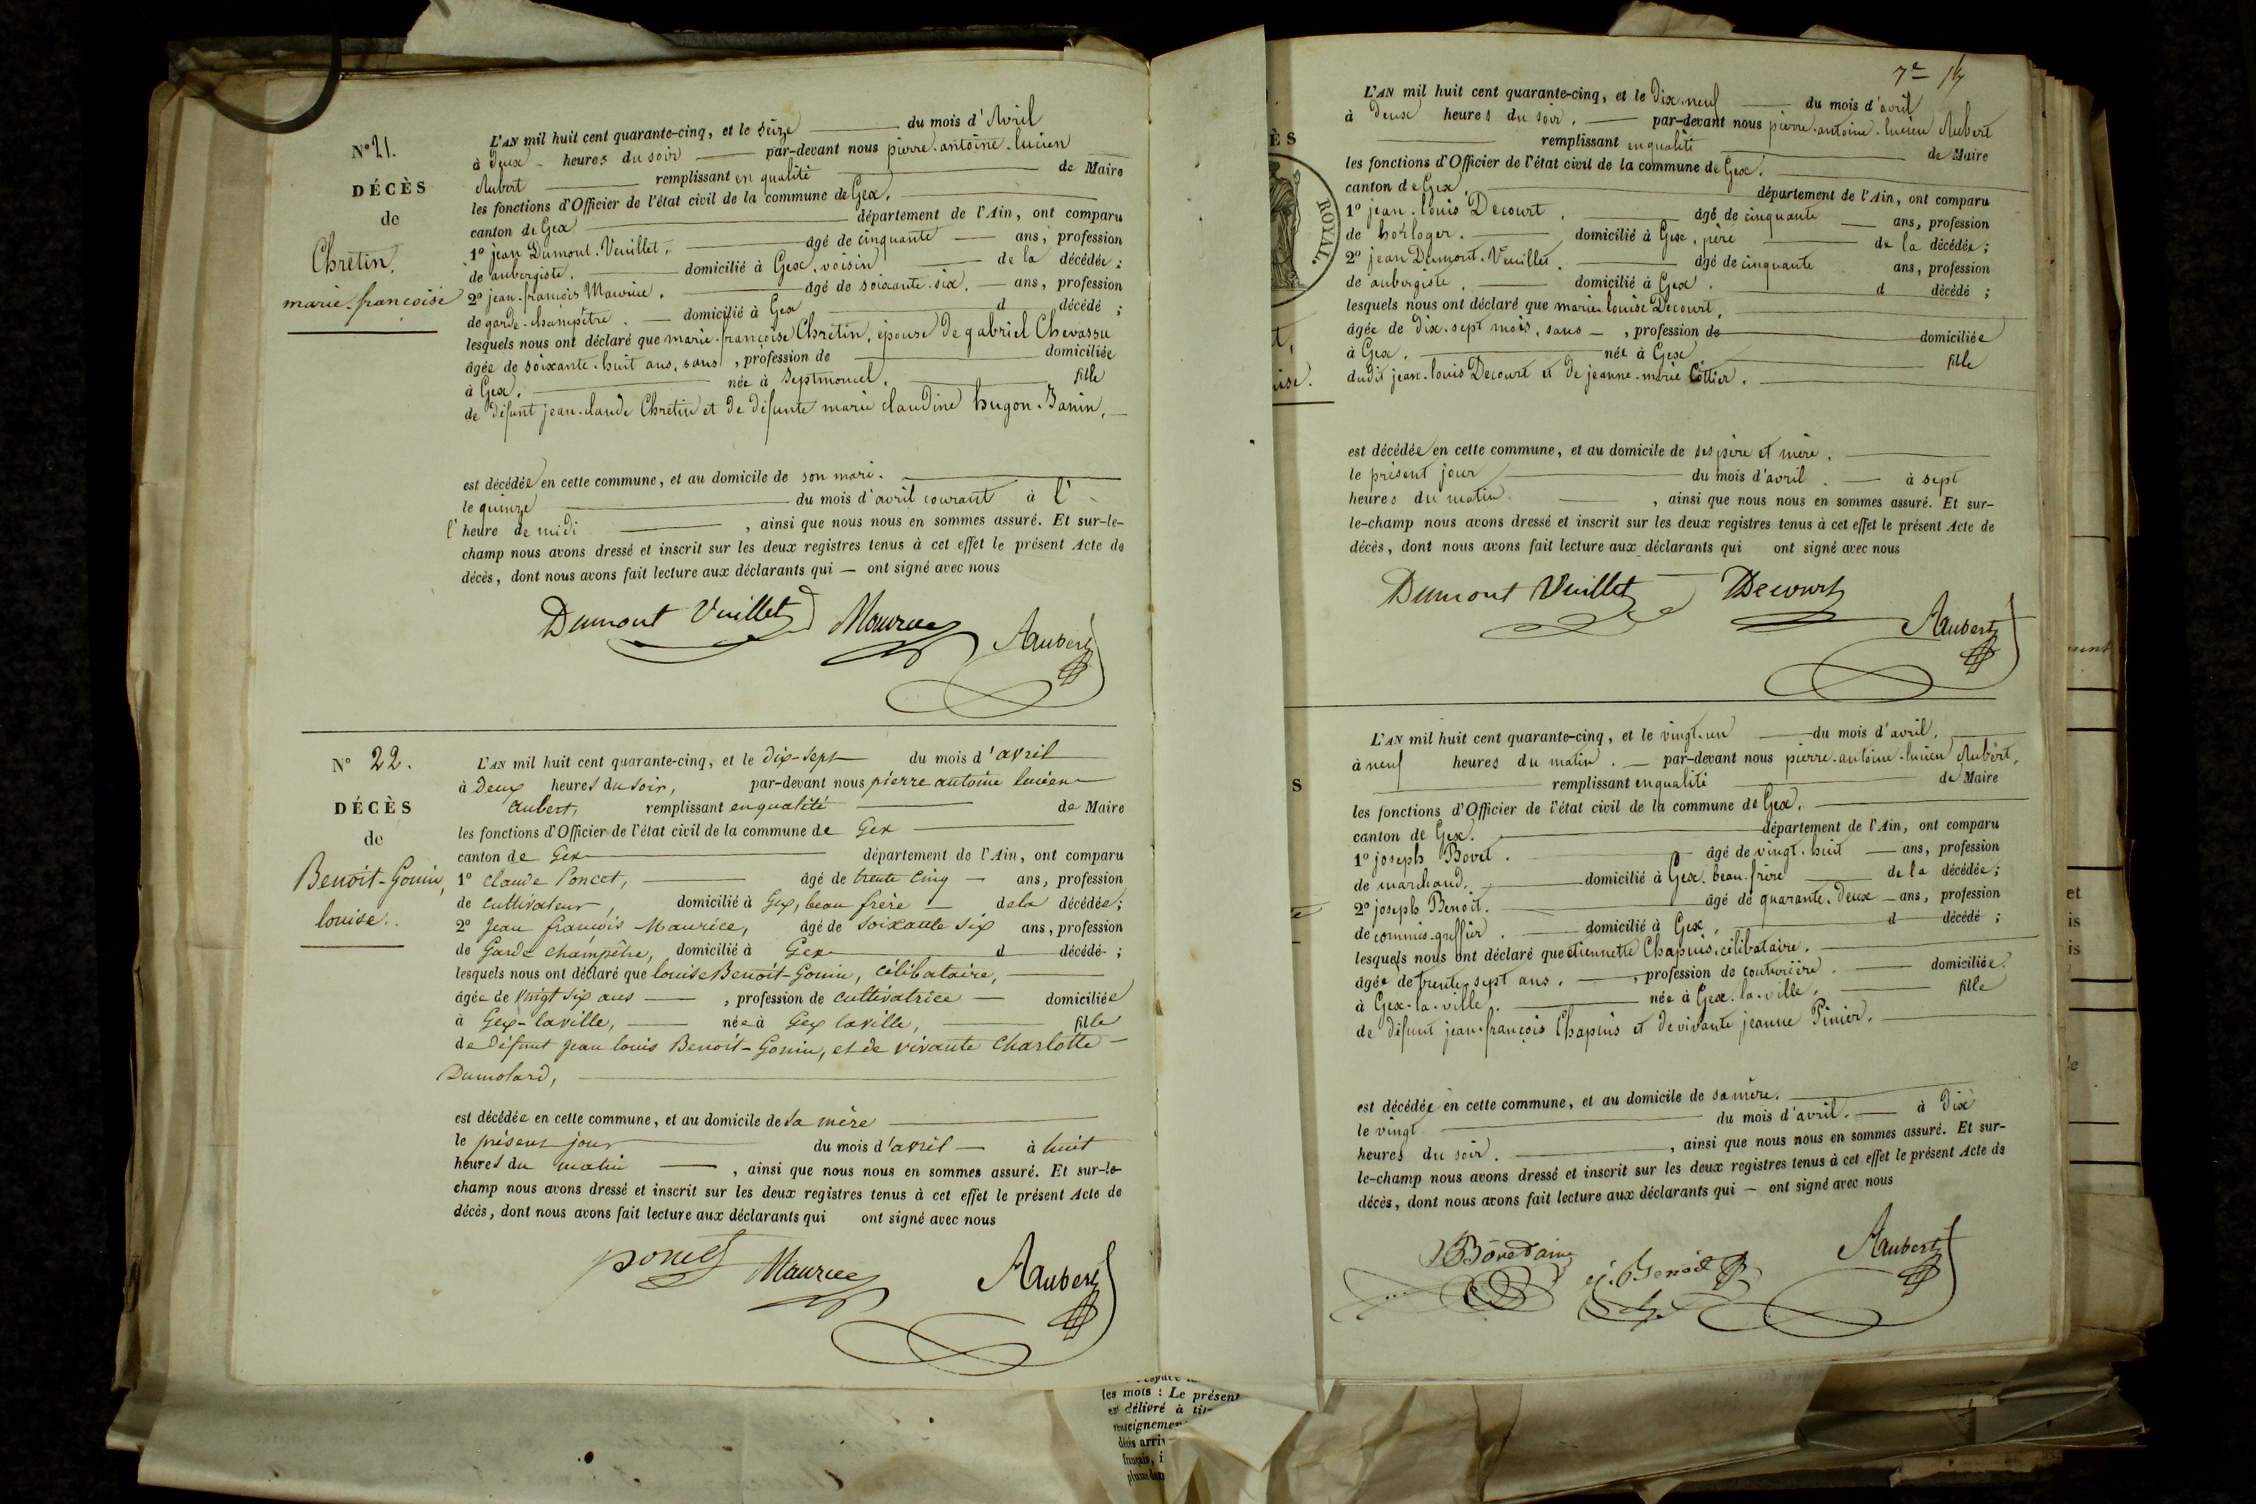 N° 21.
DÉCÈS
de
Chrétin,
marie-françoise
L'AN mil huit cent quarante-cinq, et le seize du mois d'Avril
à deux heures du soir par-devant nous pierre-antoine-lucien
Aubert remplissant en qualité de Maire
les fonctions d'Officier de l'état civil de la commune de Gex.
canton de Gex département de l'Ain, ont comparu
1° jean Dumont-Vuillet, âgé de cinquante ans, profession
de aubergiste. domicilié à Gex, voisin de la décédée;
2° jean-françois Maurice, âgé de soixante-six, ans, profession
de garde-champêtre. domicilié à Gex d décédé ;
lesquels nous ont déclaré que marie-françoise Chrétin, épouse de gabriel Chevassu
âgée de soixante-huit ans, sans, profession de domiciliée
à Gex. née à Septmoncel, fille
de défunt jean-claude Chretin et de défunte marie claudine hugon-Janin,
est décédée en cette commune, et au domicile de son mari.
le quinze du mois d'avril courant à l'
l'heure de midi, ainsi que nous nous en sommes assuré. Et sur-le-
champ nous avons dressé et inscrit sur les deux registres tenus à cet effet le présent Acte de
décès, dont nous avons fait lecture aux déclarants qui — ont signé avec nous
Dumont Vuillet Maurice Aubert
N° 22.
DÉCÈS
de
Benoit-Gonin,
louise.
L'AN mil huit cent quarante-cinq, et le dix-sept du mois d'avril
à deux heures du soir, par-devant nous pierre antoine lucien
aubert, remplissant en qualité de Maire
les fonctions d'Officier de l'état civil de la commune de Gex
canton de Gex département de l'Ain, ont comparu
1° Claude Poncet, âgé de trente cinq ans, profession
de cultivateur, domicilié à Gex, beau frère de la décédée;
2° Jean françois Maurice, âgé de soixante six ans, profession
de Garde champêtre, domicilié à Gex d décédé ;
lesquels nous ont déclaré que louise Benoit-Gonin, célibataire,
âgée de vingt six ans, profession de cultivatrice domiciliée
à Gex-laville, née à Gex laville, fille
de défunt jean louis Benoit-Gonin, et de vivante Charlotte
Dumolard,
est décédée en cette commune, et au domicile de sa mère
le présent jour du mois d'avril à huit
heures du matin, ainsi que nous nous en sommes assuré. Et sur-le-
champ nous avons dressé et inscrit sur les deux registres tenus à cet effet le présent Acte de
décès, dont nous avons fait lecture aux déclarants qui ont signé avec nous
poncet Maurice Aubert
ROYAL.
L'AN mil huit cent quarante-cinq, et le dix-neuf du mois d'avril
à deux heures du soir. par-devant nous pierre-antoine-lucien Aubert
remplissant en qualité de Maire
les fonctions d'Officier de l'état civil de la commune de Gex.
canton de Gex, département de l'Ain, ont comparu
1° jean-louis Decourt, âgé de cinquante ans, profession
de horloger. domicilié à Gex, père de la décédée;
2° jean Dumont-Vuillet. âgé de cinquante ans, profession
de aubergiste, domicilié à Gex. d décédé ;
lesquels nous ont déclaré que marie-louise Decourt,
âgée de dix-sept mois, sans, profession de domiciliée
à Gex. née à Gex fille
dudit jean-louis Decourt et de jeanne-marie Cottier.
est décédée en cette commune, et au domicile de ses père et mère.
le présent jour du mois d'avril. à sept
heures du matin, ainsi que nous nous en sommes assuré. Et sur-
le-champ nous avons dressé et inscrit sur les deux registres tenus à cet effet le présent Acte de
décès, dont nous avons fait lecture aux déclarants qui ont signé avec nous
Dumont Vuillet Decourt Aubert
L'AN mil huit cent quarante-cinq, et le vingt-un du mois d'avril.
à neuf heures du matin. par-devant nous pierre-antoine-lucien Aubert,
remplissant en qualité de Maire
les fonctions d'Officier de l'état civil de la commune de Gex.
canton de Gex. département de l'Ain, ont comparu
1° joseph Bovet. âgé de vingt-huit ans, profession
de marchand. domicilié à Gex. beau-frère de la décédée;
2° joseph Benoit. âgé de quarante-deux ans, profession
de commis-greffier. domicilié à Gex, d décédé ;
lesquels nous ont déclaré que étiennette Chapuis, célibataire.
âgée de trente-sept ans, profession de couturière. domiciliée
à Gex-la-ville. née à Gex-la-ville, fille
de défunt jean-françois Chapuis et de vivante jeanne Pinier.
est décédée en cette commune, et au domicile de sa mère.
le vingt du mois d'avril. à dix
heures du soir., ainsi que nous nous en sommes assuré. Et sur-
le-champ nous avons dressé et inscrit sur les deux registres tenus à cet effet le présent Acte de
décès, dont nous avons fait lecture aux déclarants qui — ont signé avec nous
j. Benoit Aubert
les mots : Le présent
est délivré à tit
décès arri